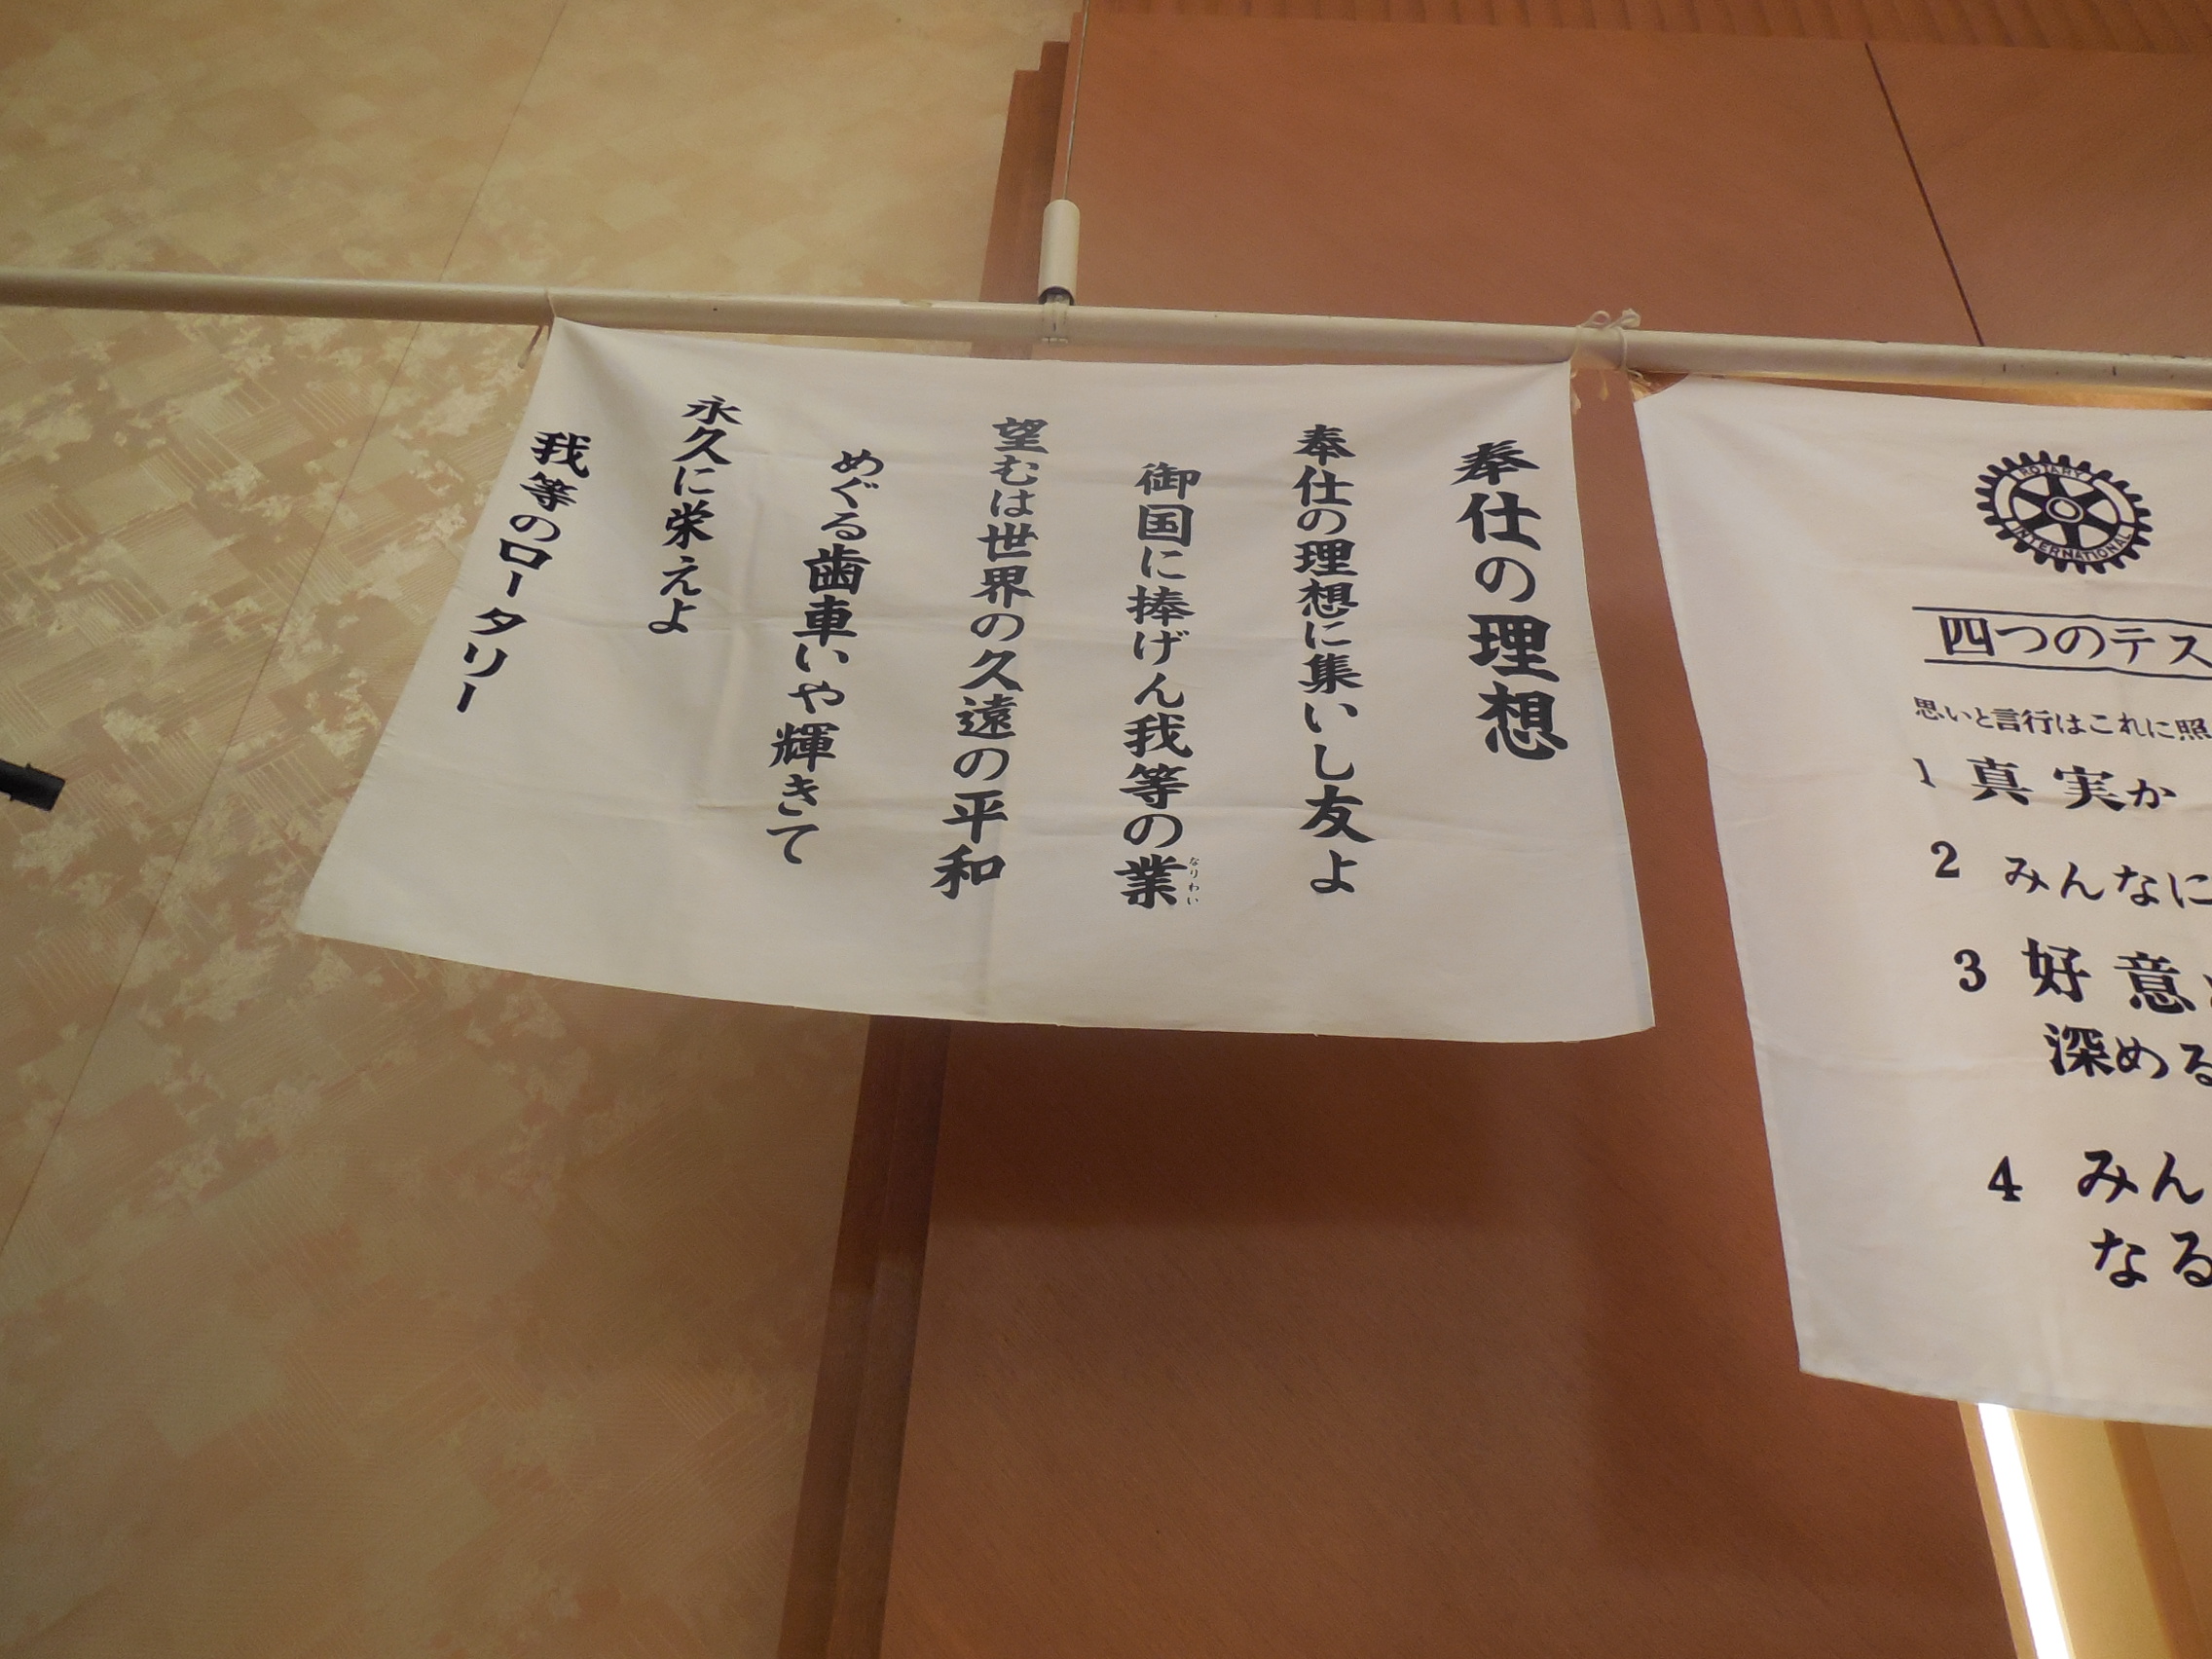 奉仕の理想
奉仕の理想に集いし友よ
御国に捧げん我等の業
なりわい
望むは世界の久遠の平和
めぐる歯車いや輝きて
永久に栄えよ
我等のロータリー
ROTARY
INTERNATIONAL
四つのテス
思いと言行はこれに照
1 真実か
2 みんなに
3 好意
深める
4 みん
なる